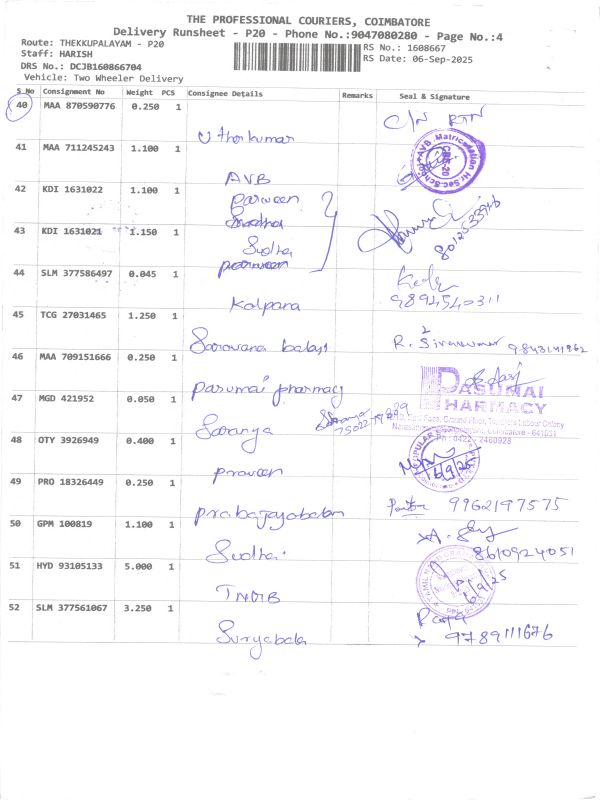 THE PROFESSIONAL COURIERS, COIMBATORE
Delivery Runsheet - P20 - Phone No.:9047080280 - Page No.:4
Route: THEKKUPALAYAM - P20
RS No.: 1608667
Staff: HARISH
RS Date: 06-Sep-2025
DRS No.: DCJB160866704
Vehicle: Two Wheeler Delivery
S No Consignment No Weight PCS Consignee Details Remarks Seal & Signature
40 MAA 870590776 0.250 1 C/N RTN
Uthorkumar
41 MAA 711245243 1.100 1
AVB
42 KDI 1631022 1.100 1
parveen
Sudha
8012533946
43 KDI 1631021 1.150 1
Sudha
parveen
44 SLM 377586497 0.045 1
Kalpana
9894540311
45 TCG 27031465 1.250 1
Saravana balaji R. Sivakumar 9843141962
46 MAA 709151666 0.250 1
Pasumai pharmacy
PASUMAI
PHARMACY
47 MGD 421952 0.050 1
Saranya Saranya
Ph : 0422 - 2460928
48 OTY 3926949 0.400 1
6/9/25
praveen
49 PRO 18326449 0.250 1
prabajayabalan 9962197575
50 GPM 100819 1.100 1
Sudha
8610924051
51 HYD 93105133 5.000 1
6/9/25
TNDIB
52 SLM 377561067 3.250 1
Suryabala 9789111676